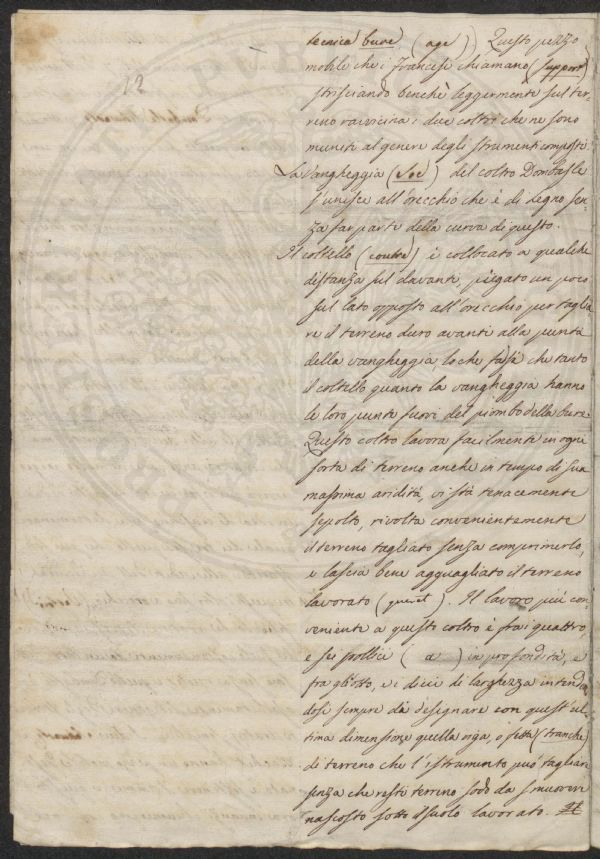 12
tecnica bure (age)) Questo pezzo
mobile che i francesi chiamano (support)
strisciando benchè leggermente sul ter
reno ravvicina i due coltri che ne sono
muniti al genere degli strumenti composti
La Vangheggia (Soc) del coltro Dombasle
s'unisce all'orecchio che è di legno sen
za far parte della curva di questo.
Il coltello (coutre) è collocato a qualche
distanza sul davanti, piegato un poco
sul lato opposto all'orecchio per taglia
re il terreno duro avanti alla punta
della vangheggia, loche fà sì che tanto
il coltello quanto la vangheggia hanno
le loro punte fuori del piombo della bure.
Questo coltro lavora facilmente in ogni
sorta di terreno anche in tempo di sua
massima aridità, vi stà tenacemente
sepolto, rivolta convenientemente
il terreno tagliato senza comprimerlo,
e lascia bene agguagliato il terreno
lavorato (gueret). Il lavoro più con
veniente a questo coltro è frai quattro,
e sei pollici ( a ) in profondità, e
fra gli otto, e i dieci di larghezza intenden
dosi sempre dà designare con quest'ul
tima dimensione quella riga, o fetta (tranche)
di terreno che l'istrumento può tagliare
senza che resti terreno sodo da smuovere
nascosto sotto il suolo lavorato.